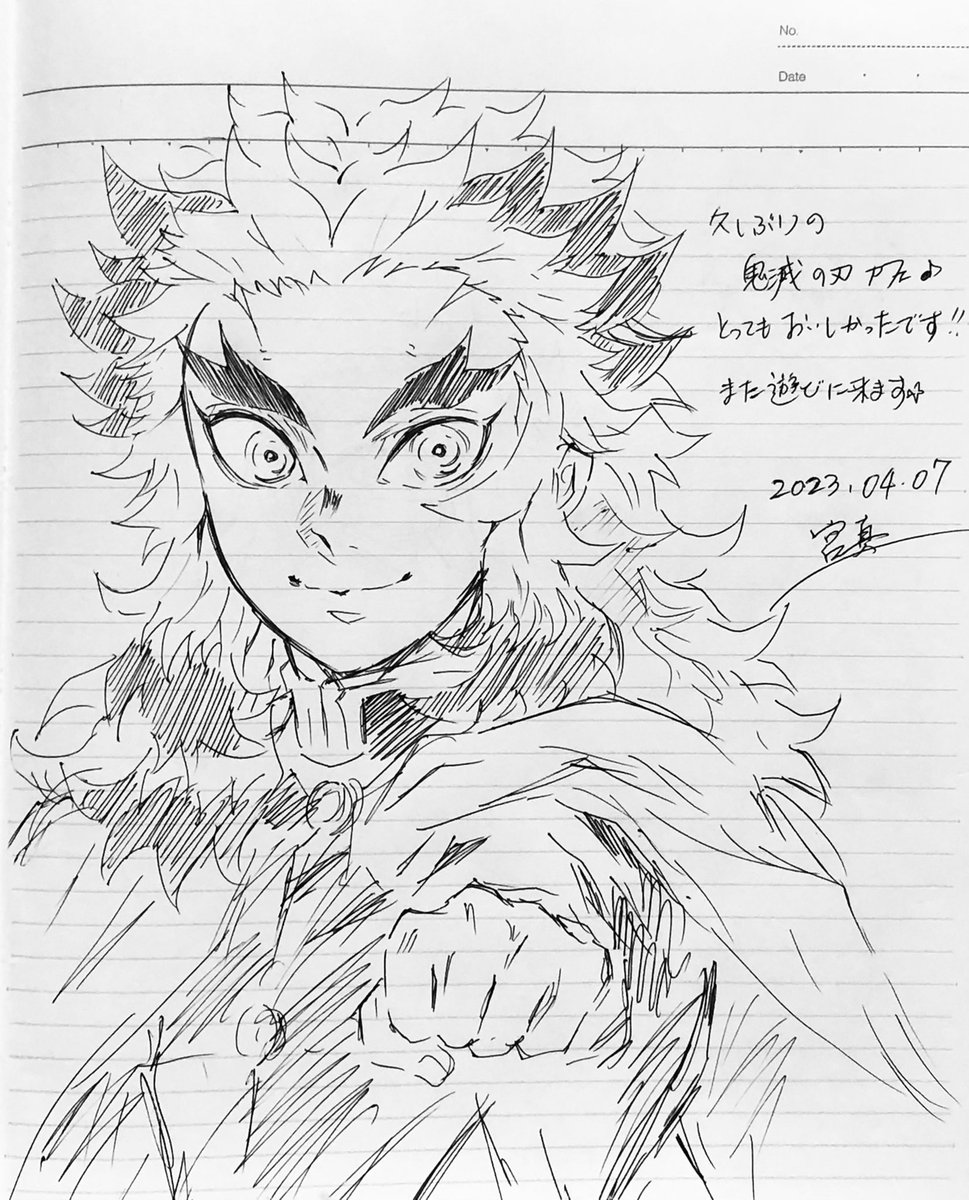 No.
Date
久しぶりの
鬼滅の刃カフェ♪
とってもおいしかったです!!
また遊びに来ます♪
2023.04.07
宮真